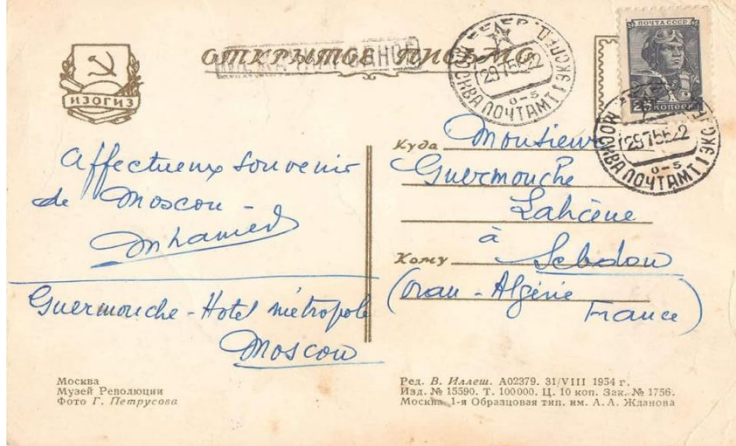 ОТКРЫТОЕ ПИСЬМО
ИЗОГИЗ
ПОЧТА СССР
25 КОПЕЕК
МОСКВА ПОЧТАМТ 1 ЭКСПЕД.
29 7 55
0-5
МОСКВА ПОЧТАМТ 1 ЭКС
29 7 55
0-5
Affectueux souvenir
de Moscou -
Mhamed
Guermouche - Hotel métropole
Moscou
Куда Monsieur
Guermouche
Lahcène
à
Кому Sebdou
(Oran - Algérie
France)
Москва
Музей Революции
Фото Г. Петрусова
Ред. В. Иллеш. А02379. 31/VIII 1954 г.
Изд. № 15590. Т. 100000. Ц. 10 коп. Зак. № 1756.
Москва, 1-я Образцовая тип. им. А. А. Жданова